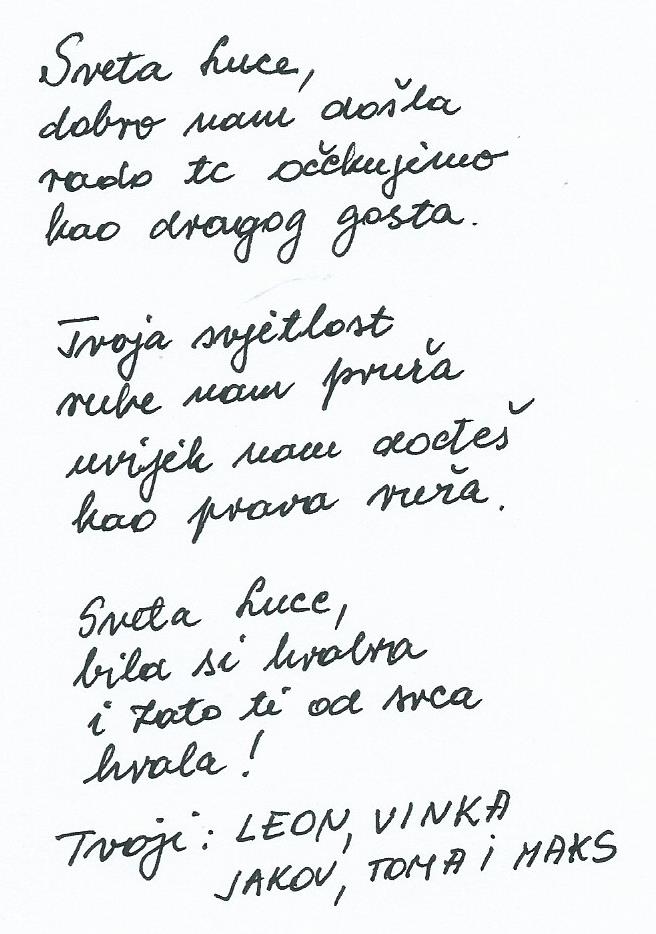 Sveta Luce,
dobro nam došla
rado te očekujemo
kao dragog gosta.
Tvoja svjetlost
ruke nam pruža
uvijek nam dođeš
kao prava ruža.
Sveta Luce,
bila si hrabra
i zato ti od srca
hvala!
Tvoji: LEON, VINKA
JAKOV, TOMA I MAKS